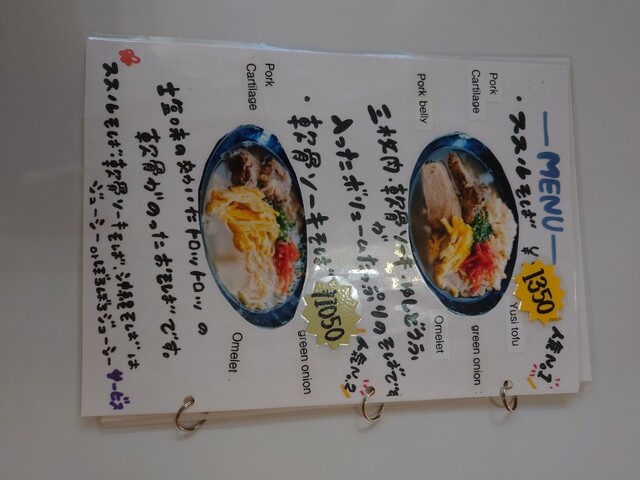 MENU
・ススルそば ¥1350
人気No.1
Pork Cartilage
Pork belly
Yusi tofu
green onion
Omelet
三枚肉、軟骨ソーキ、ゆしどうふが
入ったボリュームたっぷりのそばです
・軟骨ソーキそば ¥1050
人気No.2
Pork Cartilage
green onion
Omelet
塩味の効いたトロットロッの
軟骨がのったおそばです。
ススルそば、軟骨ソーキそば、沖縄そばは
ジューシー
サービス